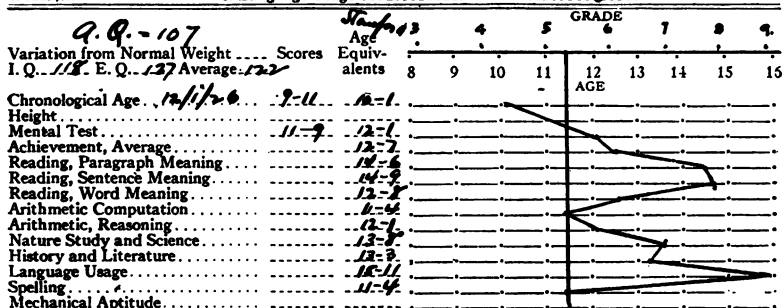 A.Q.-107
Stanford
Age
Equiv-
alents
GRADE
3 4 5 6 7 8 9.
Variation from Normal Weight .... Scores
I. Q. 118. E. Q. 127 Average .122
8 9 10 11 12 13 14 15 16
AGE
Chronological Age .. 12/1/26 9-11 10-1
Height
Mental Test 11-9 12-1
Achievement, Average 12-7
Reading, Paragraph Meaning 14-6
Reading, Sentence Meaning 14-9
Reading, Word Meaning 12-8
Arithmetic Computation 11-4
Arithmetic, Reasoning 12-1
Nature Study and Science 13-8
History and Literature 13-3
Language Usage 15-11
Spelling 11-4
Mechanical Aptitude